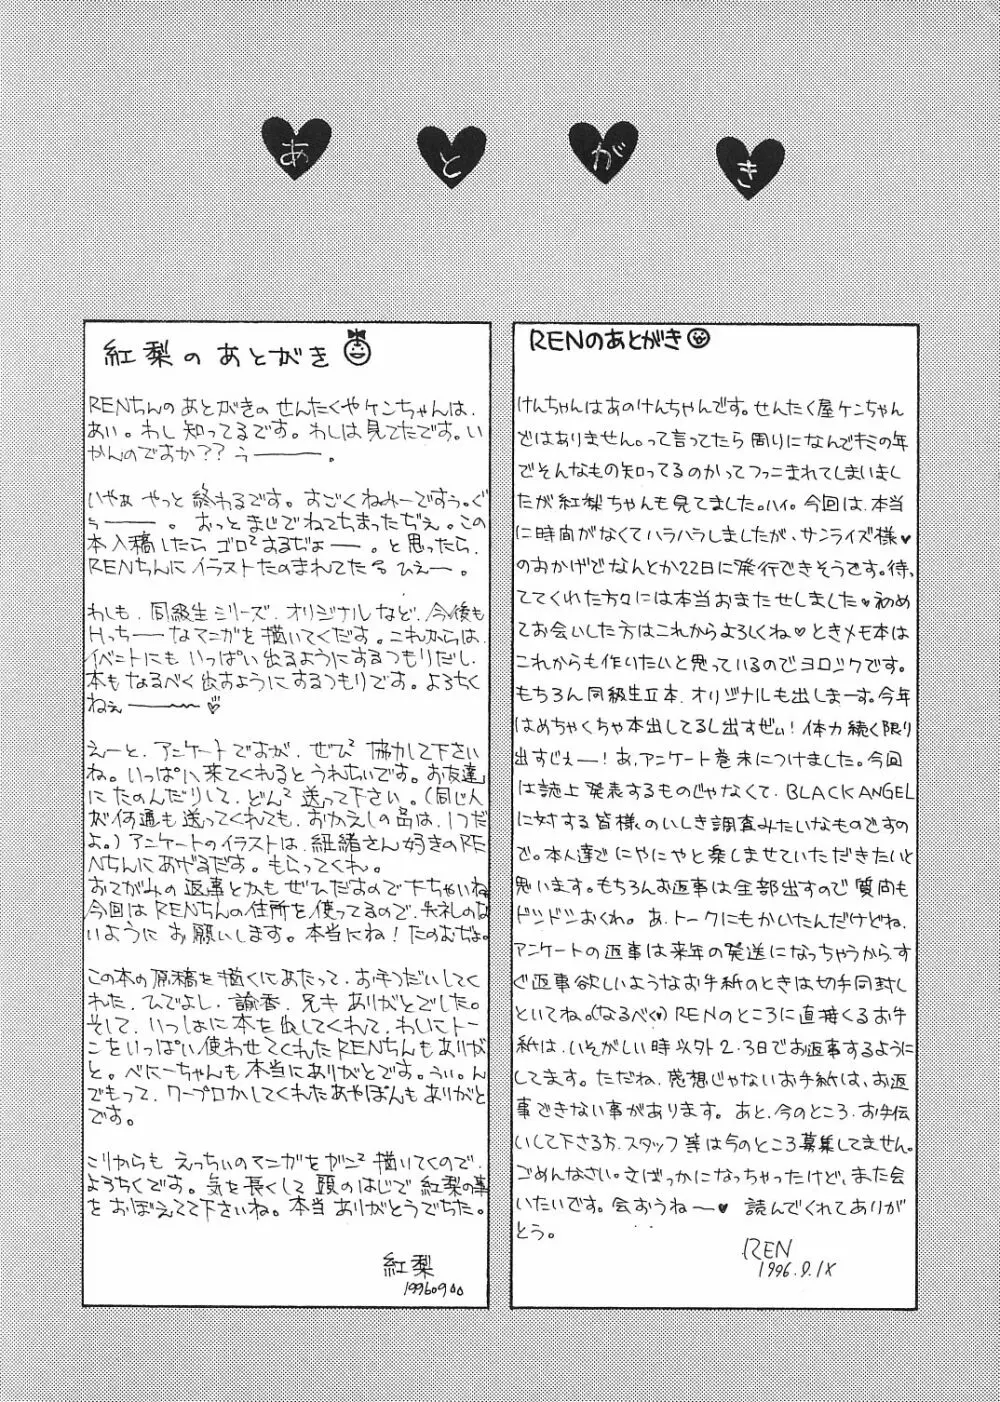 あとがき
紅梨のあとがき
RENちんのあとがきのせんたくやケンちゃんは、
あい。わし知ってるです。わしは見てたです。い
かんのですか??ぅーーー。
いやぁ やっと終わるです。すごくねみーですぅ。ぐ
ぅーーー。おっとまじでねてちまったぢぇ。この
本入稿したらゴロ²するぢょーー。と思ったら、
RENちんにイラストたのまれてたるひぇーー。
わしも、同級生シリーズ、オリジナルなど、今後も
Hっちーーなマンガを描いてくだす。これからは、
イベントにもいっぱい出るようにするつもりだし、
本もなるべく出すようにするつもりです。よろちく
ねぇーーー〜
えーと、アンケートですが、ぜひ²協力して下さい
ね。いっぱい来てくれるとうれちいです。お友達
にたのんだりして、どん²送って下さい。(同じ人
が何通も送ってくれても、おかえしの品は、1つだ
よ。)アンケートのイラストは、紐緒さん好きのRE
Nちんにあげるだす。もらってくれ。
おてがみの返事とかもぜひだすので下ちゃいね
今回はRENちんの住所を使ってるので、失礼のな
いようにお願いします。本当にね!たのむぢょ。
この本の原稿を描くにあたって、お手つだいしてく
れた、ひでよし、諭香、兄キありがとでした。
そして、いっしょに本を出してくれて、わいにトー
ンをいっぱい使わせてくれたRENちんもありが
と。べにーちゃんも本当にありがとです。うぃ。ん
でもって、ワープロかしてくれたあやぽんもありがと
です。
こりからもえっちぃのマンガをガン²描いてくので、
よろちくです。気を長くして頭のはじで紅梨の事
をおぼえてて下さいね。本当ありがとうでちた。
紅梨
RENのあとがき
けんちゃんはあのけんちゃんです。せんたく屋ケンちゃん
ではありません。って言ってたら周りになんでキミの年
でそんなもの知ってるのかってツッこまれてしまいまし
たが紅梨ちゃんも見てました。ハイ。今回は、本当
に時間がなくてハラハラしましたが、サンライズ様♥
のおかげでなんとか22日に発行できそうです。待っ
ててくれた方々には本当おまたせしました♥初め
てお会いした方はこれからよろしくね♥ときメモ本は
これからも作りたいと思っているのでヨロシクです。
もちろん同級生Ⅱ本、オリジナルも出しまーす。今年
はめちゃくちゃ本出してるし出すぜぃ!体力続く限り
出すじぇー!あ、アンケート巻末につけました。今回
は誌上発表するものじゃなくて、BLACK ANGEL
に対する皆様のいしき調査みたいなものですの
で。本人達でにやにやと楽しませていただきたいと
思います。もちろんお返事は全部出すので質問も
ドンドンおくれ。あ、トークにもかいたんだけどね、
アンケートの返事は来年の発送になっちゃうからす
ぐ返事欲しいようなお手紙のときは切手同封し
といてね。(なるべく♥)RENのところに直接くるお手
紙は、いそがしい時以外2、3日でお返事するように
してます。ただね、感想じゃないお手紙は、お返
事できない事があります。あと、今のところ、お手伝
いして下さる方、スタッフ等は今のところ募集してません。
ごめんなさい。文ばっかになっちゃったけど、また会
いたいです。会おうねー♥ 読んでくれてありが
とう。
REN
1996.9.18